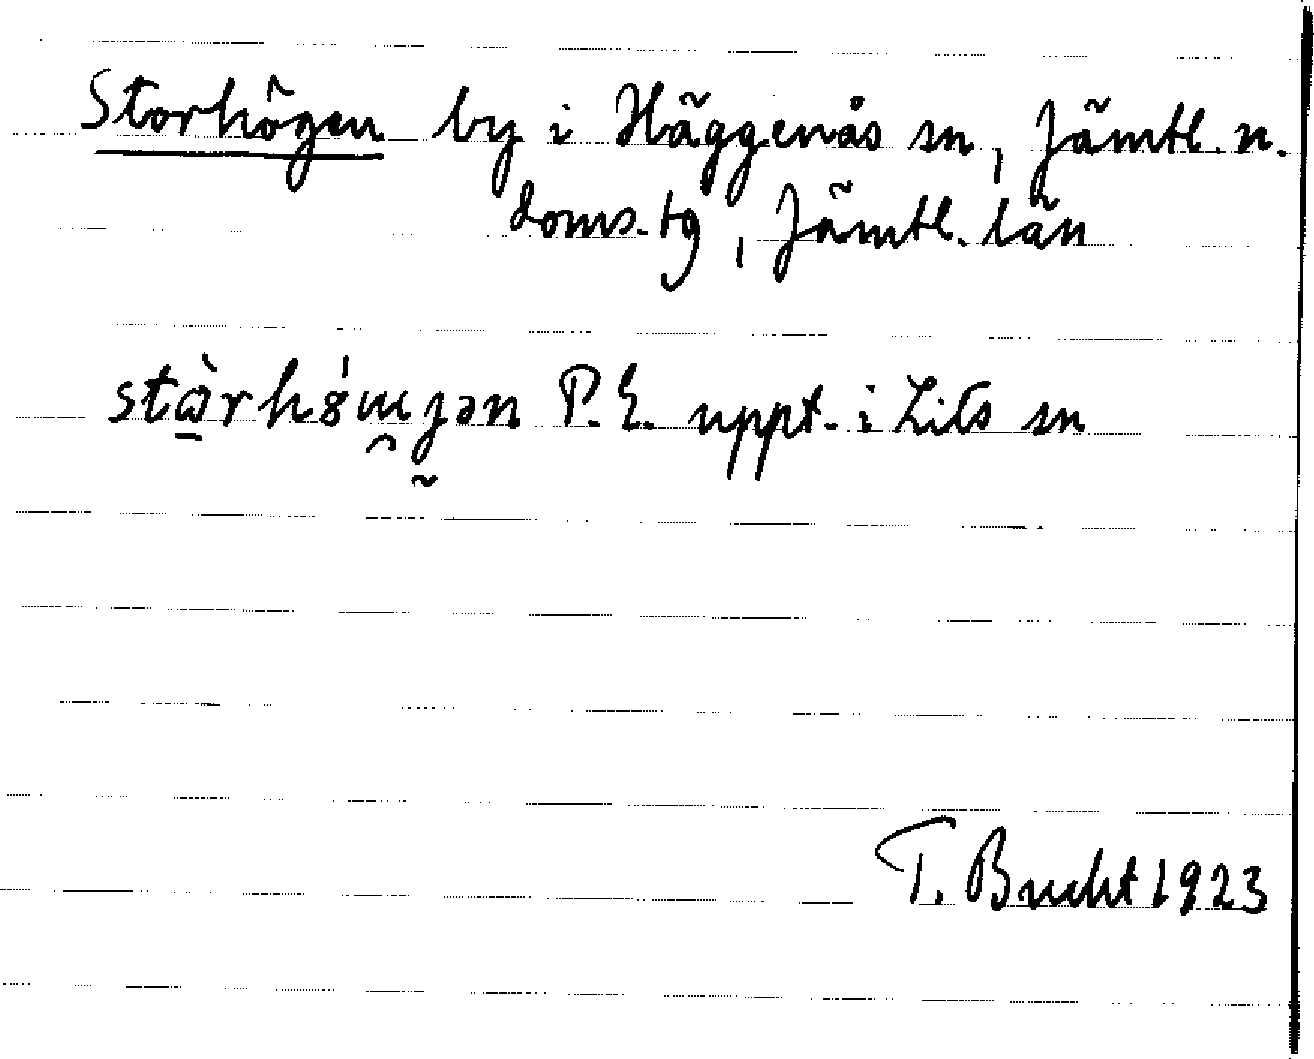 Storhögen by i Häggenås sn, Jämtl. n.
doms. tg, Jämtl. län
P. E. uppt. i Lits sn
T. Bucht 1923